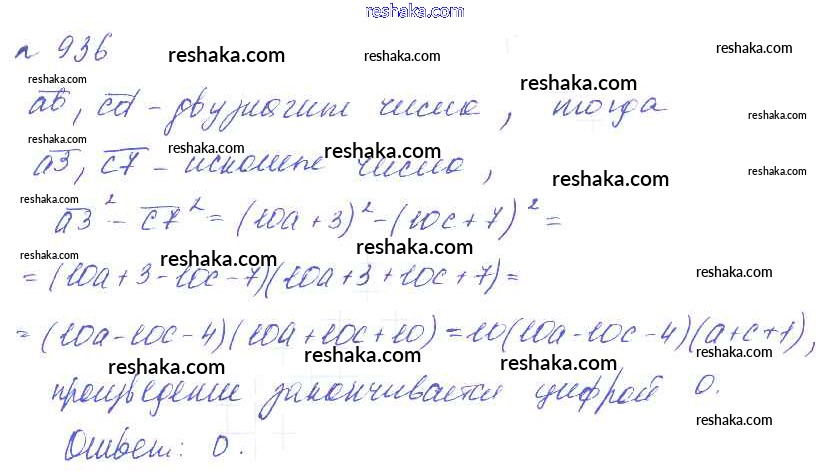 reshaka.com
n 936
reshaka.com reshaka.com reshaka.com
reshaka.com reshaka.com
ab, cd - двузначные числа, тогда
reshaka.com reshaka.com reshaka.com reshaka.com
a3, c7 - искомые числа,
reshaka.com reshaka.com reshaka.com
a3² - c7² = (10a + 3)² - (10c + 7)² =
reshaka.com reshaka.com reshaka.com reshaka.com
= (10a + 3 - 10c - 7)(10a + 3 + 10c + 7) =
= (10a - 10c - 4)(10a + 10c + 10) = 10(10a - 10c - 4)(a + c + 1),
reshaka.com reshaka.com reshaka.com reshaka.com
произведение заканчивается цифрой 0.
reshaka.com
Ответ: 0.